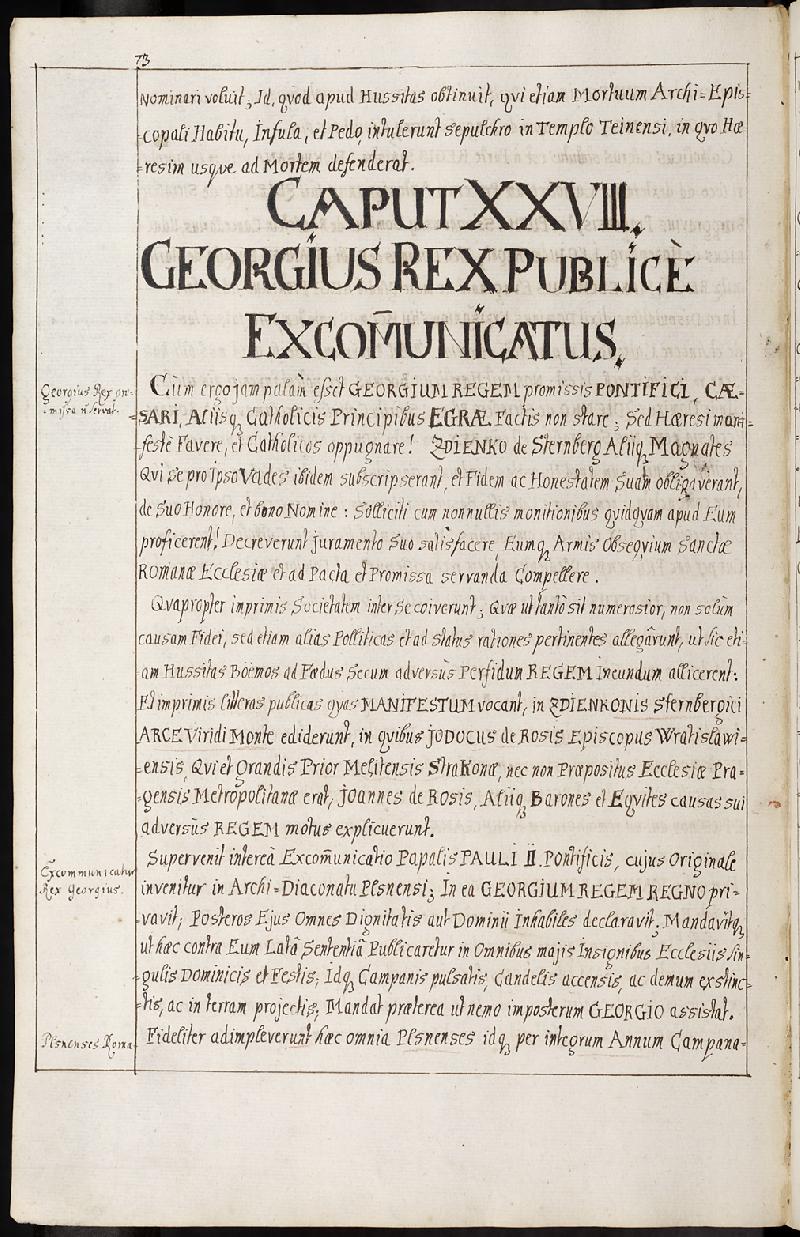 73
Nominari voluit, Id, qvod apud Hussitas obtinuit, qvi etiam Mortuum Archi-Epis-
-copali Habitu, Infula, et Pedo, intulerunt sepulchro in Templo Teinensi, in qvo Hæ
-resim usqve ad Mortem defenderat.
CAPUT XXVIII.
GEORGIUS REX PUBLICÈ
EXCOM̃UNICATUS.
Georgius Rex pro-
-missa ñ servat.
Cùm ergo jam palàm esset GEORGIUM REGEM promissis PONTIFICI, CÆ-
SARI, Aliisq; Catholicis Principibus EGRÆ Factis non stare; Sed Hæresi mani-
-festè Favere, et Catholicos oppugnare! ZDIENKO de Sternberg Aliiq; Magnates
Qvi se pro Ipso Vades ibidem subscripserant, et Fidem ac Honestatem Suam obligaverant,
de Suo Honore, et bono Nomine: Solliciti cum nonnullis monitionibus quidqvam apud Eum
proficerent! Decreverunt juramento Suo satisfacere, Eumq; Armis Obseqvium Sanctæ
Romanæ Ecclesiæ et ad Pacta et Promissa servanda Compellere.
Qvapropter inprimis Societatem inter se coiverunt; Qvæ ut tantò sit numerosior, non solùm
causam Fidei, sed etiam alias Polliticas et ad status rationes pertinentes allegârunt, ut sic eti-
am Hussitas Boëmos ad Fædus Secum adversùs Perfidum REGEM Ineundum allicerent:
Et imprimis litteras publicas qvas MANIFESTUM vocant, in ZDIENKONIS Sternbergici
ARCE Viridi Monte ediderunt, in qvibus JODOCUS de Rosis Episcopus Wratislawi-
-ensis, Qvi et Grandis Prior Melitensis Strakonæ, nec non Præpositus Ecclesiæ Pra-
-gensis Metropolitanæ erat, Joannes de Rosis, Aliiq; Barones et Eqvites causas sui
adversùs REGEM motus explicuerunt.
Excommunicatur
Rex Georgius.
Supervenit intereà Excom̃unicatio Papalis PAULI II. Pontificis, cujus Originale
invenitur in Archi-Diaconatu Plsnensi; In ea GEORGIUM REGEM REGNO pri-
vavit; Posteros Ejus Omnes Dignitatis aut Dominii Inhabiles declaravit; Mandavitq;
ut hæc contra Eum Latâ Sententiâ Publicaretur in Omnibus majis Insignibus Ecclesiis sin-
-gulis Dominicis et Festis; Idq; Campanis pulsatis, Candelis accensis, ac demum exstinc-
-tis, ac in terram projectis; Mandat præterea ut nemo imposterum GEORGIO assistat.
Plsnenses Roma-
Fideliter adimpleverunt hæc omnia Plsnenses idq; per integrum Annum Campana-